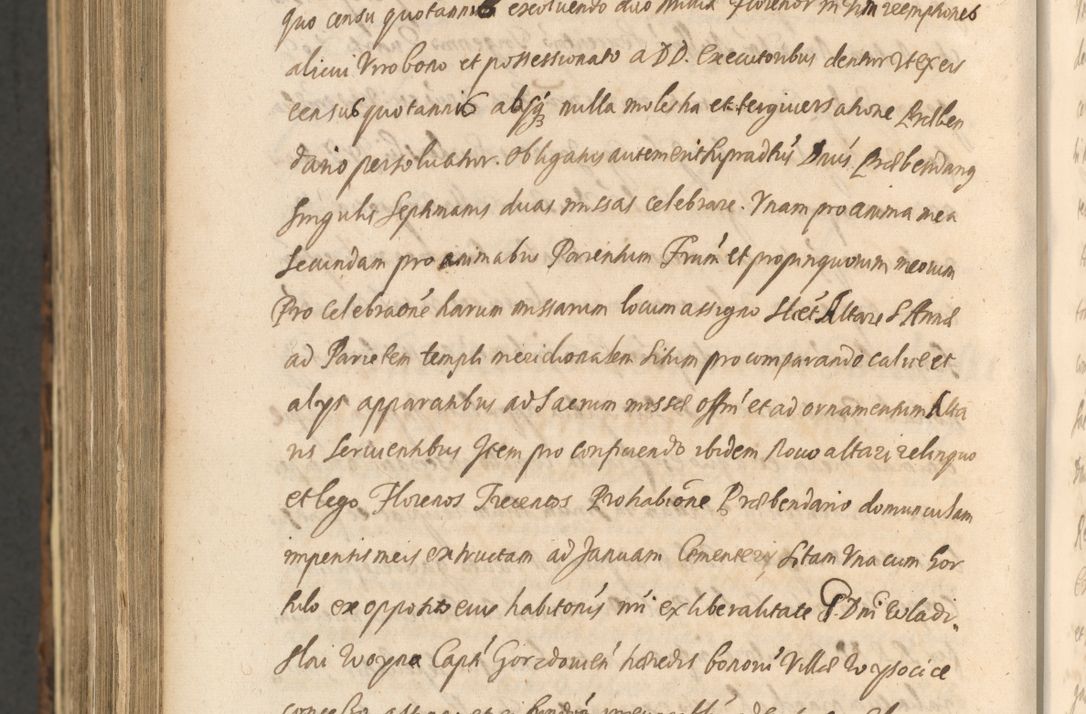 quo censu quotannis exoluendo duo millia Florenor in vim reemptiones
alicui Viro bono et possessionato a DD. Executoribus dentur Vt ex eis
census quotannis absq nulla molestia et tergiuersatione Præben
dario persoluatur. Obligatus autem erit supradtus Dnus Præbendarg
singulis septimanis duas missas celebrare. Vnam pro anima mea
secundam pro animabus Parentum Frum et propinquorum meorum
Pro celebraone harum missarum locum assigno Altare S Annæ
ad Parietem templi meridionalem situm pro comparando calice et
alys apparatibus ad Sacrum missæ offm et ad ornamentum Alta
ris seruientibus Item pro conficiendo ibidem Nouo altari relinquo
et lego Florenos Trecentos Pro habitione Præbendario domunculam
impensis meis extructam ad Januam Cementery sitam Vna cum hor
tulo ex opposito eius habitonis mi ex liberalitate P Dni Wladi
slai Woyna Capti Gorzdouien hæredis bonorum Villæ Wysocice